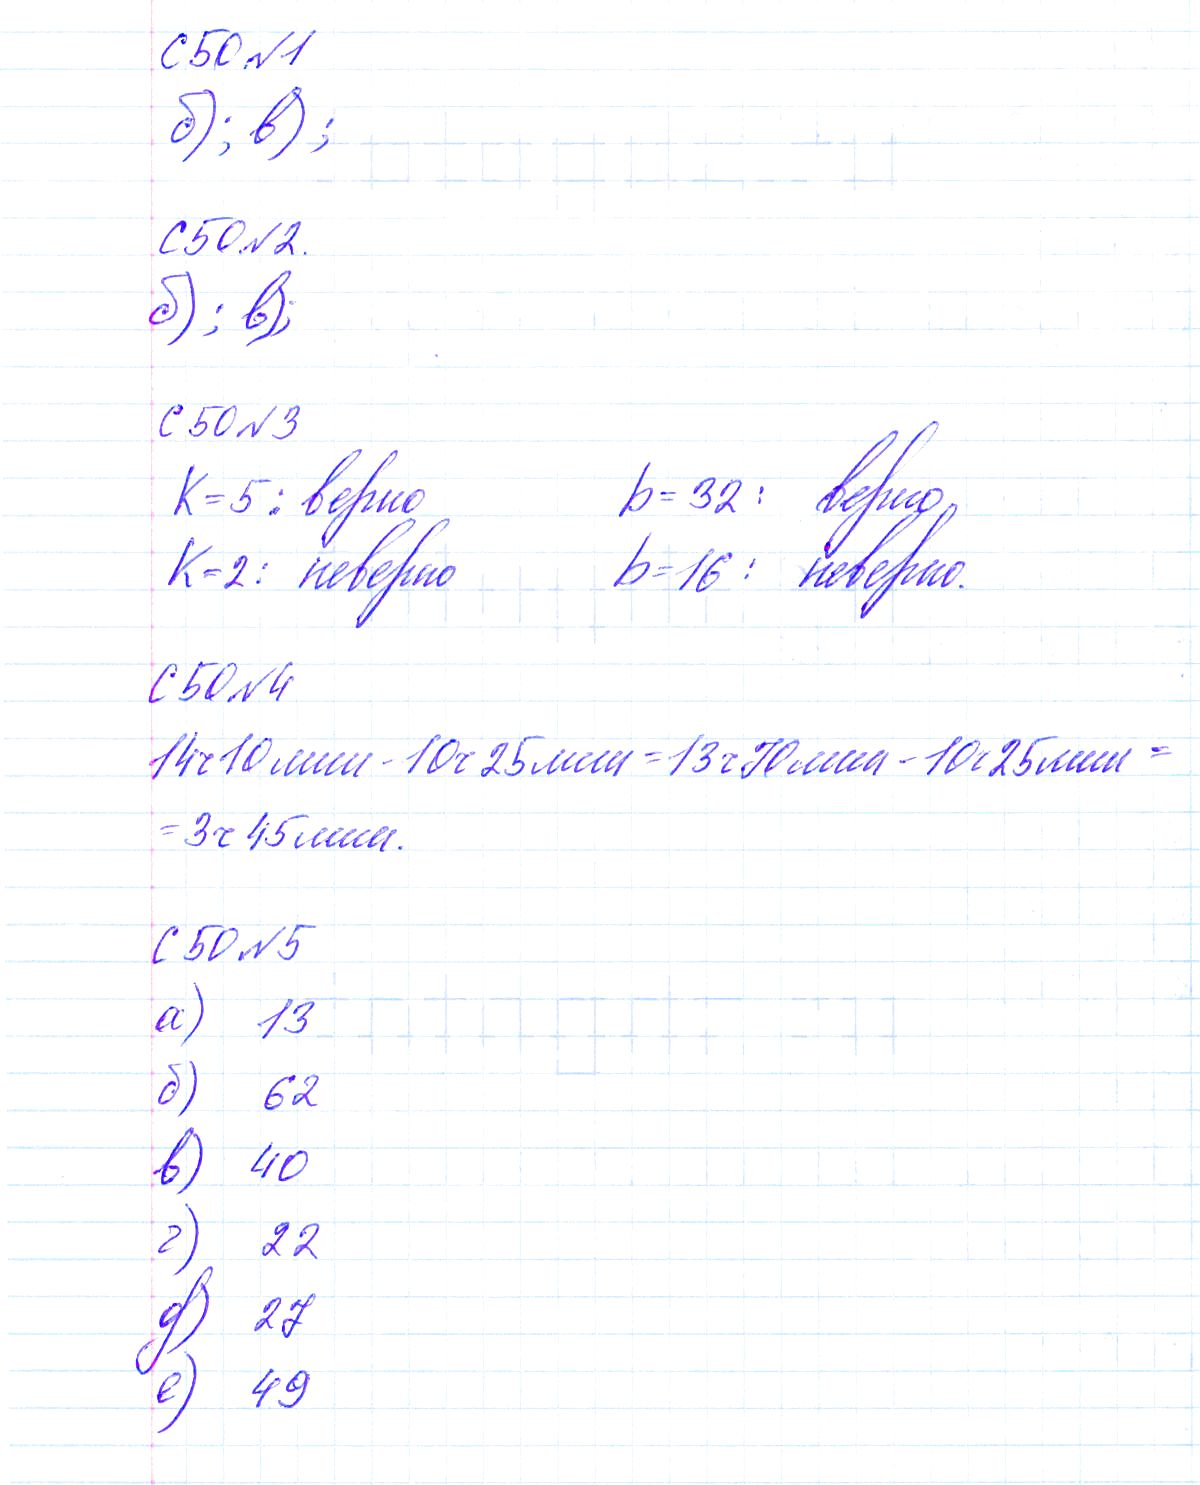 С50№1
б); в);
С50№2.
б); в);
С50№3
К=5: верно b=32: верно,
К=2: неверно b=16: неверно.
С50№4
14ч10мин-10ч25мин=13ч70мин-10ч25мин=
=3ч45мин.
С50№5
а) 13
б) 62
в) 40
г) 22
д) 27
е) 49